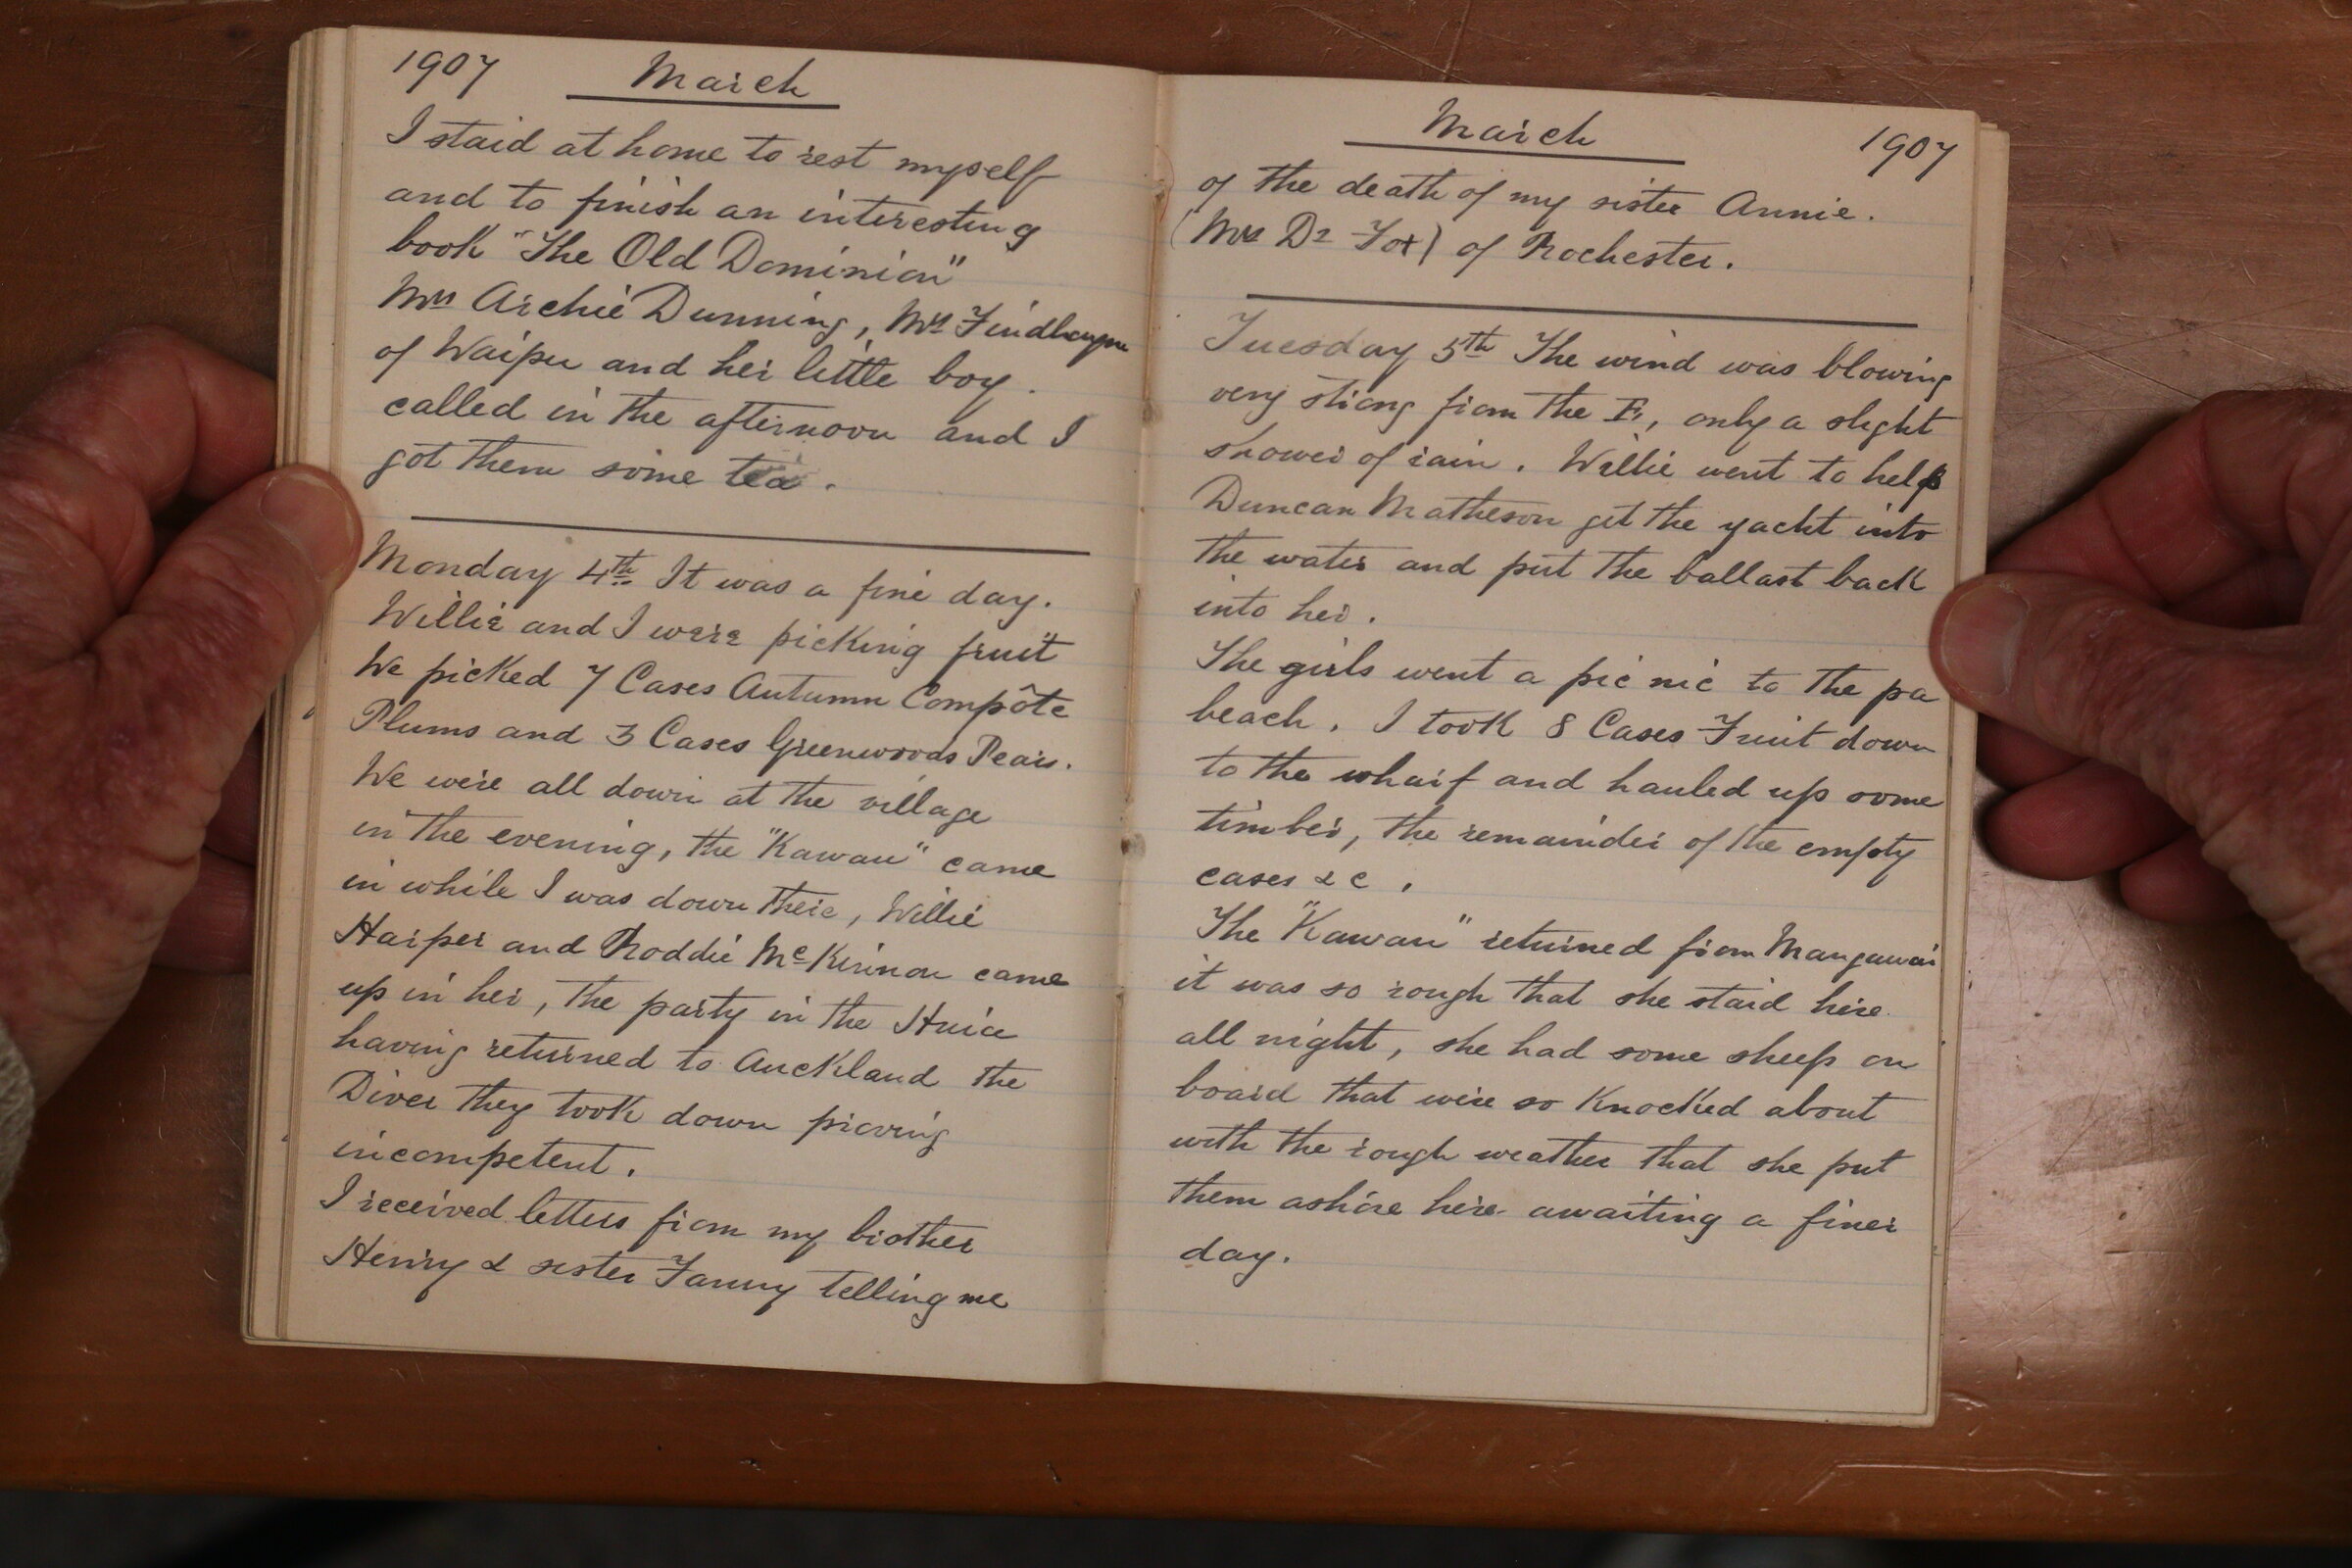 1907 March
I staid at home to rest myself
and to finish an interesting
book "The Old Dominion"
Mrs Archie Dunning, Mrs
of Waipu and her little boy.
called in the afternoon and I
got them some tea.
Monday 4th It was a fine day.
Willie and I were picking fruit
We picked 7 Cases Autumn Compôte
Plums and 3 Cases Greenwoods Pears.
We were all down at the village
in the evening, the "Kawau" came
in while I was down there, Willie
Harper and Roddie McKinnon came
up in her, the party in the Huia
having returned to Auckland the
Diver they took down proving
incompetent.
I received letters from my brother
Henry & sister Fanny telling me
March 1907
of the death of my sister Annie.
(Mrs Dr Fox) of Rochester.
Tuesday 5th The wind was blowing
very strong from the E, only a slight
shower of rain. Willie went to help
Duncan Matheson get the yacht into
the water and put the ballast back
into her.
The girls went a pic nic to the pa
beach. I took 8 Cases Fruit down
to the wharf and hauled up some
timber, the remainder of the empty
cases &c.
The "Kawau" returned from Mangawai
it was so rough that she staid here
all night, she had some sheep on
board that were so Knocked about
with the rough weather that she put
them ashore here awaiting a finer
day.